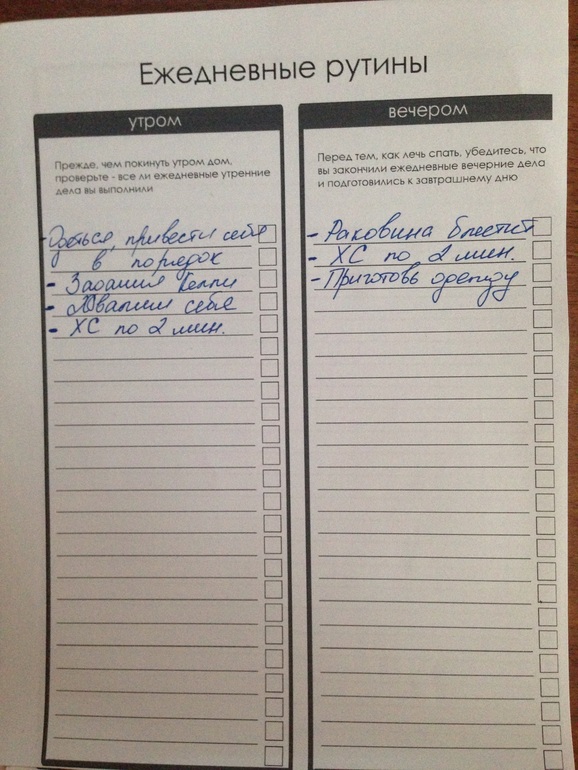 Ежедневные рутины
утром
Прежде, чем покинуть утром дом,
проверьте - все ли ежедневные утренние
дела вы выполнили
- Одеться, привести себя
в порядок
- Задания Келли
- Хвалим себя
- ХС по 2 мин.
вечером
Перед тем, как лечь спать, убедитесь, что
вы закончили ежедневные вечерние дела
и подготовились к завтрашнему дню
- Раковина блестит
- ХС по 2 мин.
- Приготовь одежду